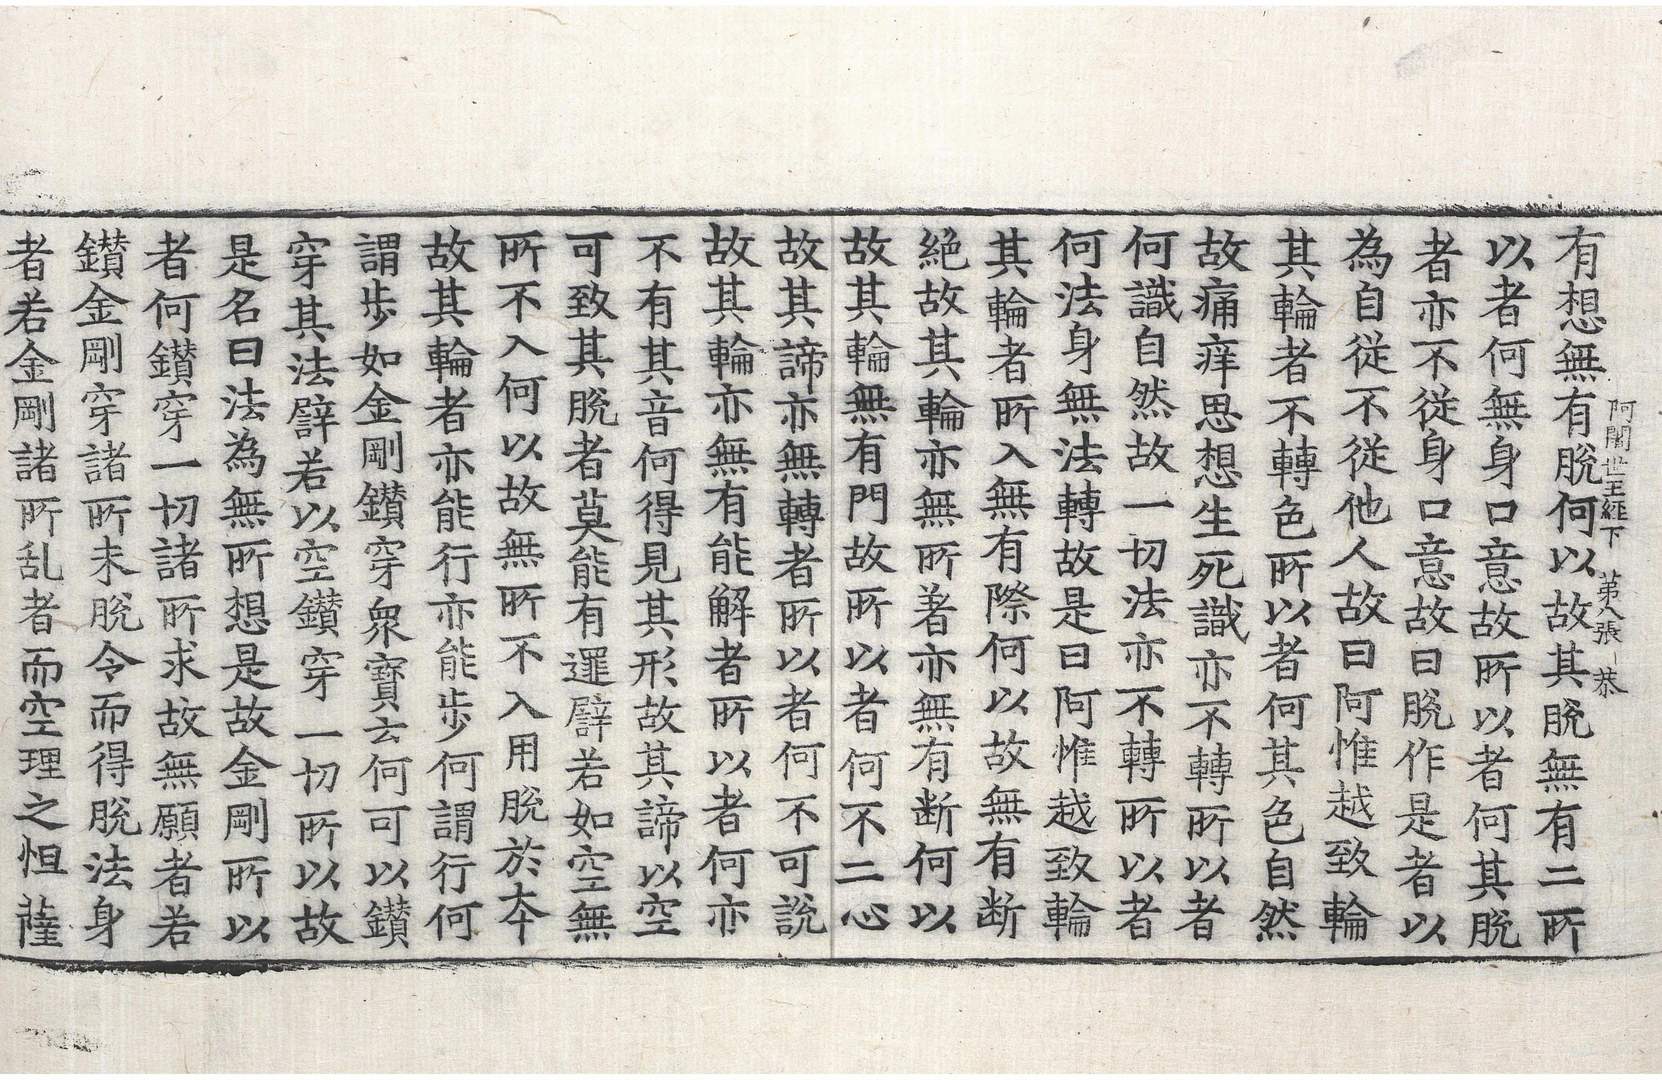 阿闍世王経下　第八張　恭
有想無有脫何以故其脫無有二所
以者何無身口意故所以者何其脫
者亦不從身口意故曰脫作是者以
為自從不從他人故曰阿惟越致輪
其輪者不轉色所以者何其色自然
故痛痒思想生死識亦不轉所以者
何識自然故一切法亦不轉所以者
何法身無法轉故是曰阿惟越致輪
其輪者所入無有際何以故無有断
絕故其輪亦無所著亦無有断何以
故其輪無有門故所以者何不二心
故其諦亦無轉者所以者何不可說
故其輪亦無有能解者所以者何亦
不有其音何得見其形故其諦以空
可致其脫者莫能有邏譬若如空無
所不入何以故無所不入用脫於本
故其輪者亦能行亦能步何謂行何
謂步如金剛鑚穿衆寶云何可以鑚
穿其法譬若以空鑚穿一切所以故
是名曰法為無所想是故金剛所以
者何鑚穿一切諸所求故無願者若
鑚金剛穿諸所未脫令而得脫法身
者若金剛諸所乱者而空理之怛薩